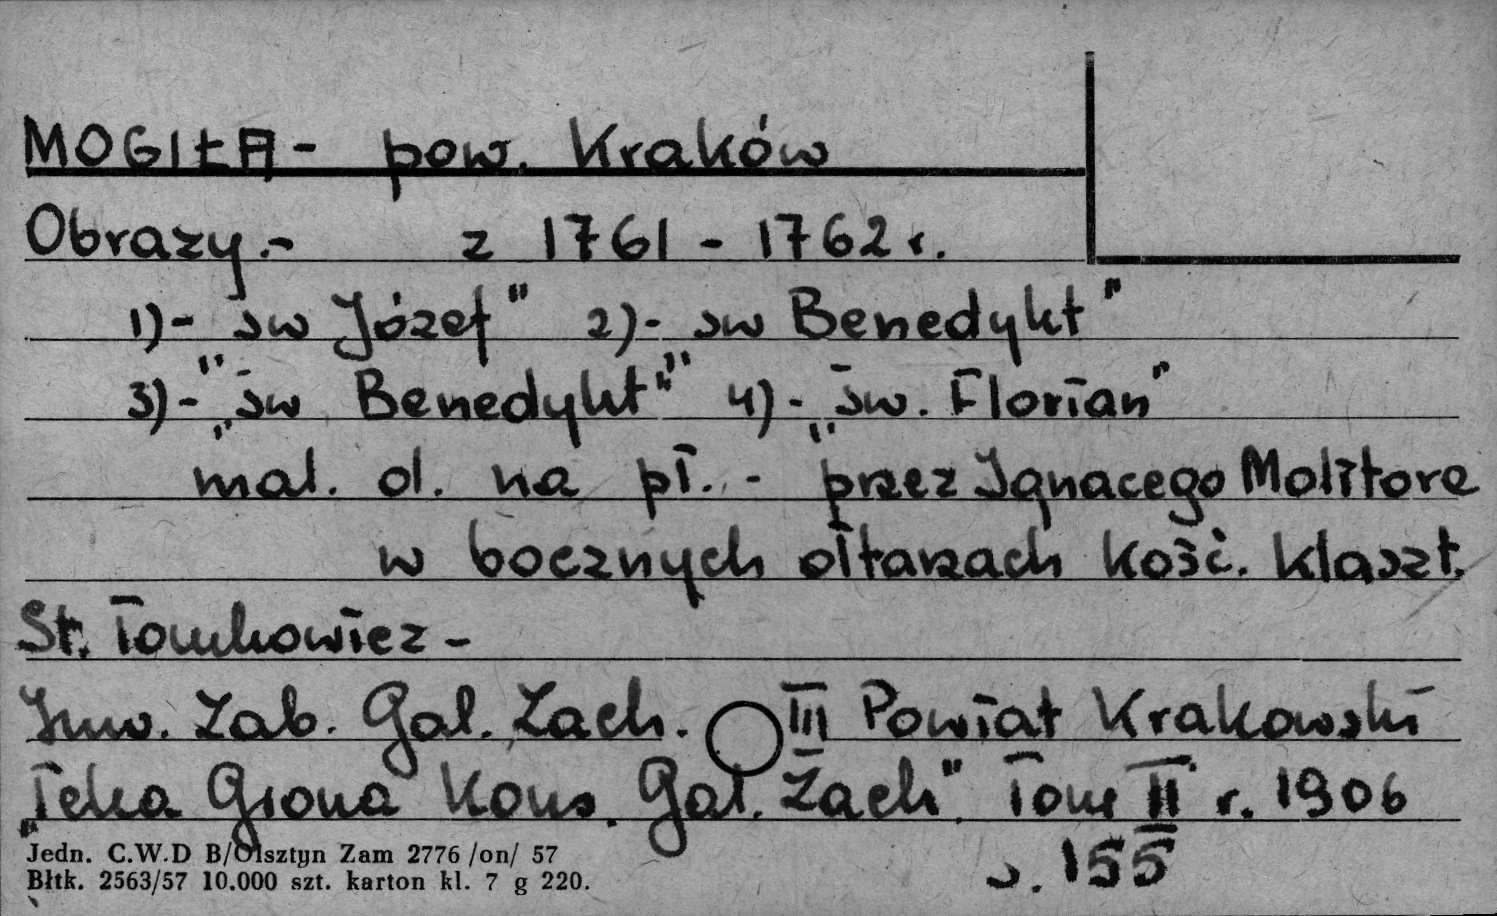 MOGIŁA - pow. Kraków
Obrazy.- z 1761 - 1762 r.
1)- „św Józef" 2)- „św Benedykt"
3)- „św Benedykt" 4)- „św. Florian"
mal. ol. na pł. - przez Ignacego Molitora
w bocznych ołtarzach kość. klaszt.
St. Tomkowicz -
Inw. Zab. Gal. Zach. III Powiat Krakowski
„Teka Grona Kons. Gal. Zach". Tom II r. 1906
s. 155
Jedn. C.W.D B/Olsztyn Zam 2776 /on/ 57
Błtk. 2563/57 10.000 szt. karton kl. 7 g 220.